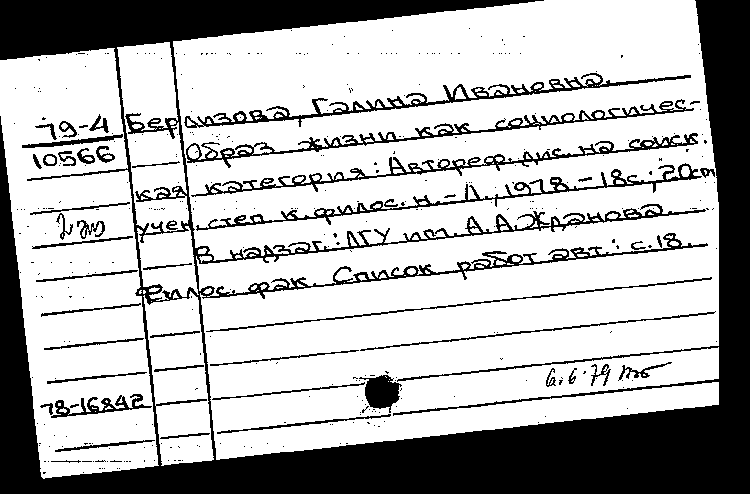 79-4
10566
2 экз
Берлизова, Галина Ивановна.
Образ жизни как социологичес-
кая категория: Автореф. дис. на соиск.
учен. степ. к. филос. н. - Л., 1978. - 18с.; 20см
В надзаг.: ЛГУ им. А. А. Жданова.
Филос. фак. Список работ авт.: с. 18.
78-16842
6.6.79